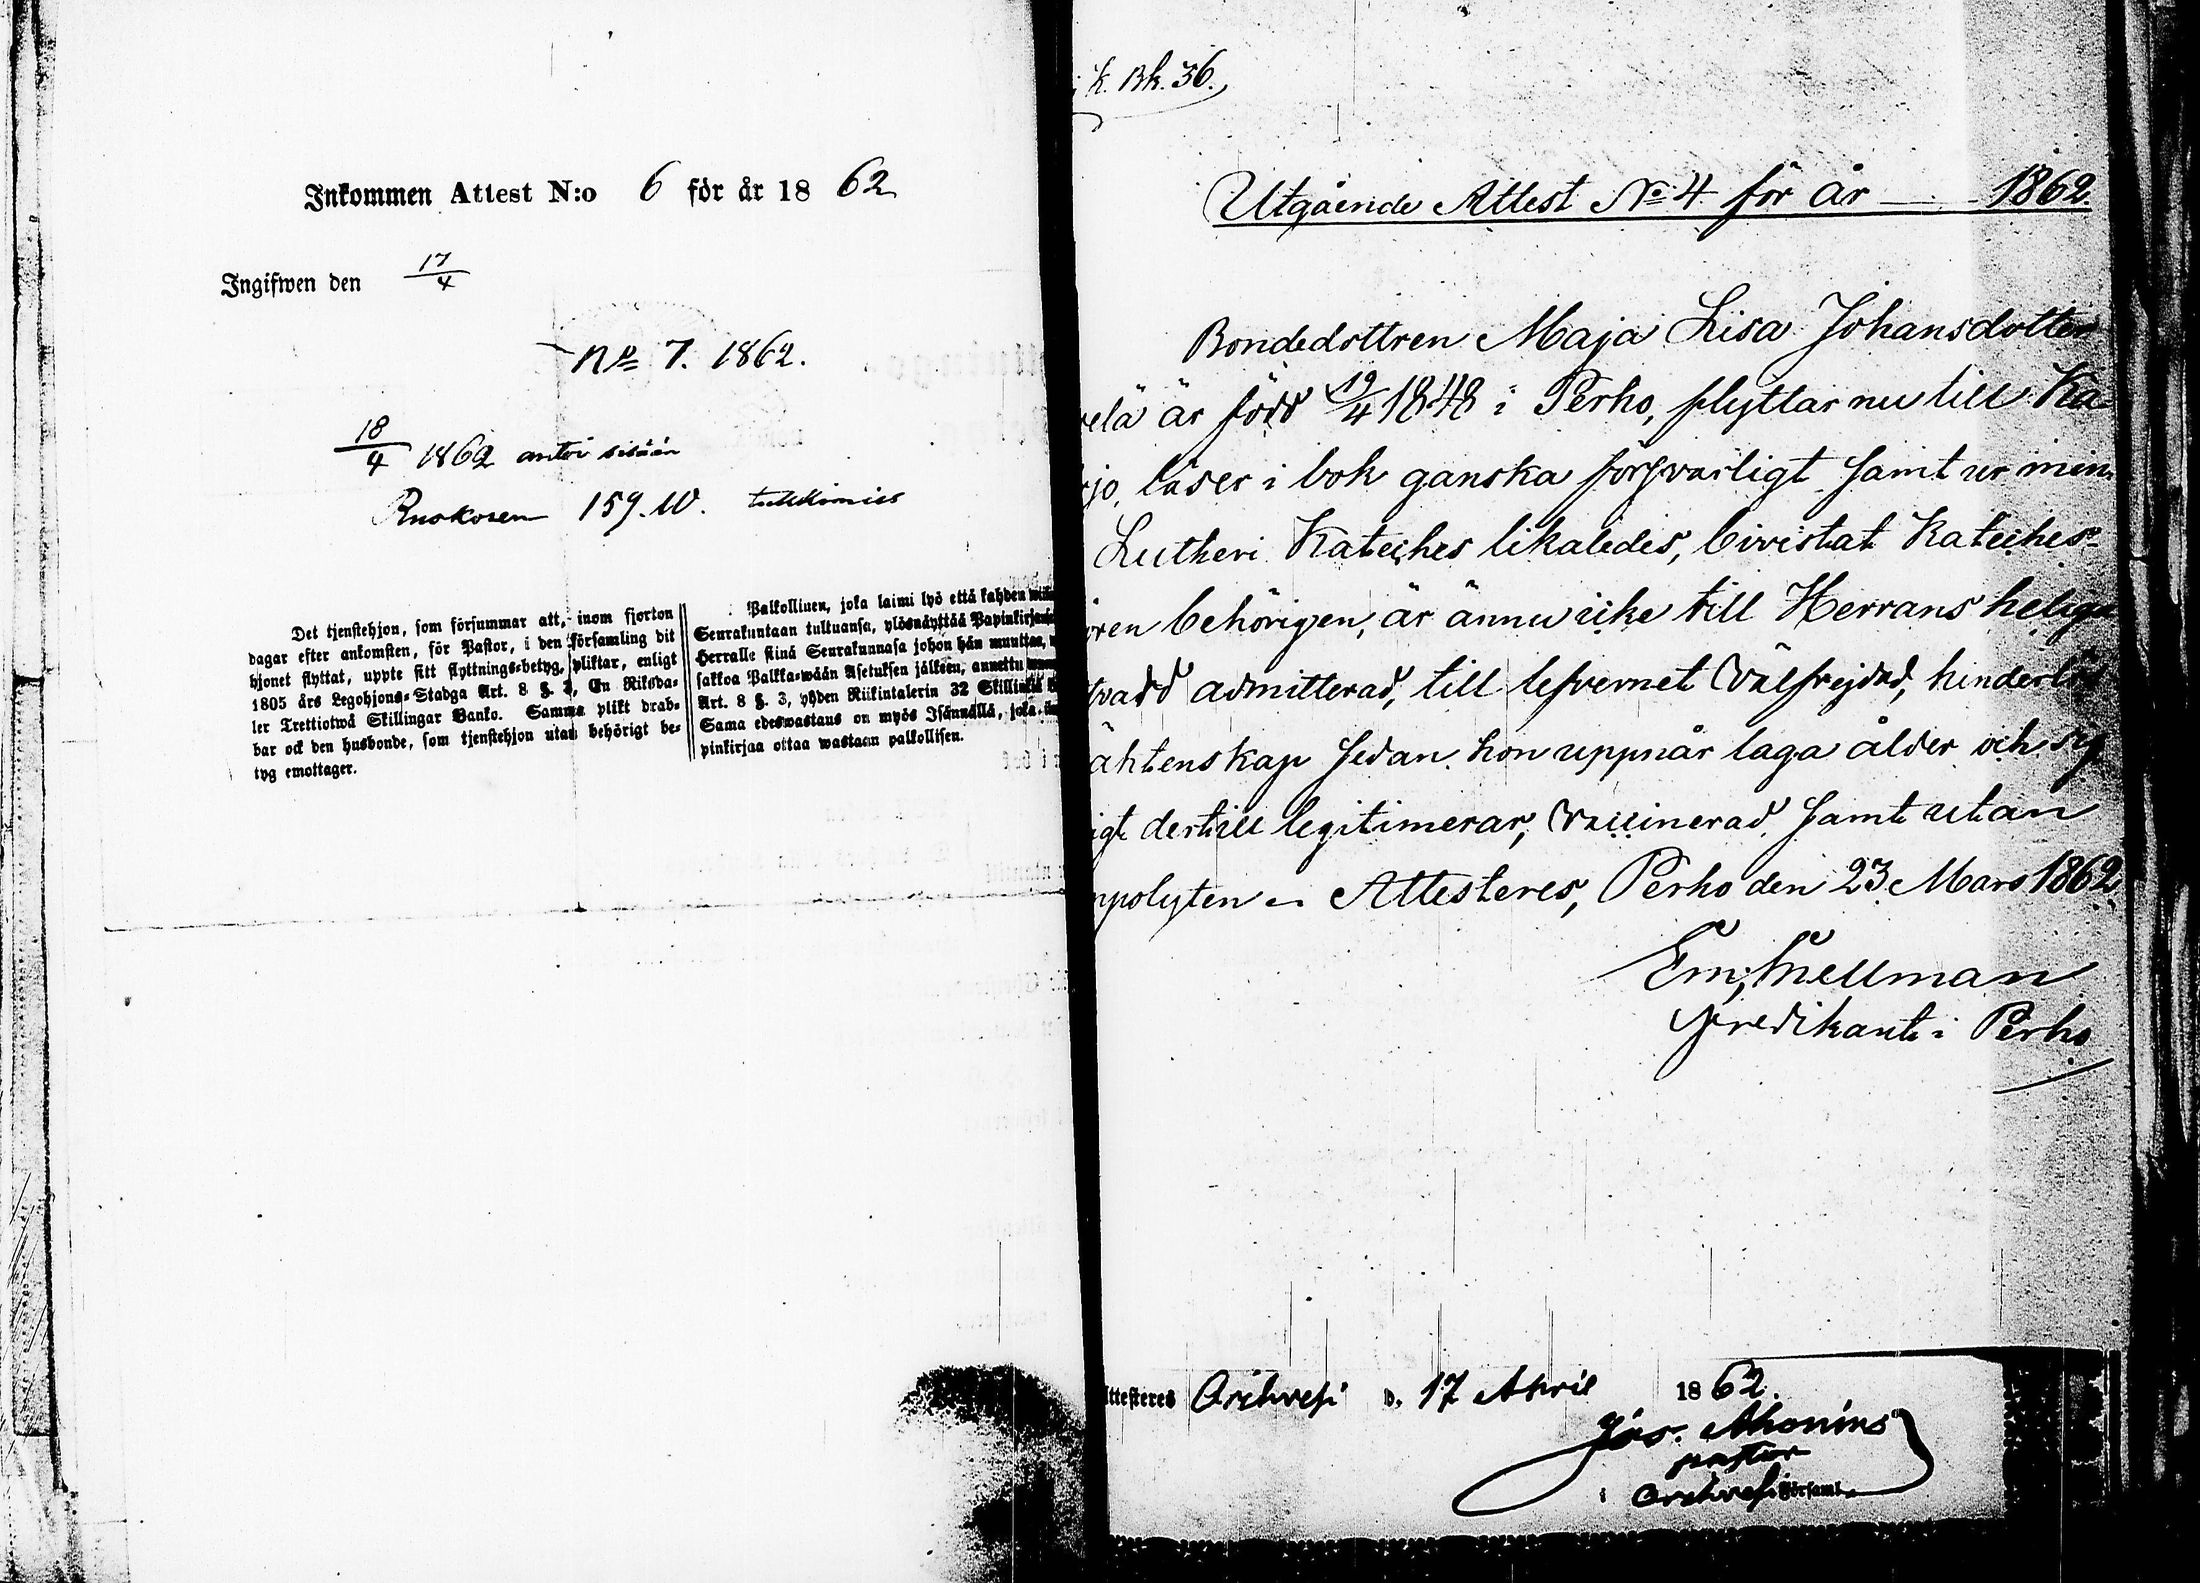 Inkommen Attest N:o 6 för år 18 62
Ingifwen den 17/4
No 7. 1862.
18/4 1862 antoi sisään
Ruskosen 159.10.
Det tjenstehjon, som försummar att, inom fjorton
dagar efter ankomsten, för Pastor, i den församling dit
hjonet flyttat, uppte sitt flyttnings-betyg, pliktar, enligt
1805 års Legohjons-Stadga Art. 8 §. 3, En Riksda-
ler Trettiotwå Skillingar Banko. Samma plikt drab-
bar ock den husbonde, som tjenstehjon utan behörigt be-
tyg emottager.
Palkollinen, joka laimi lyö että kahden
Seurakuntaan tultuansa, ylösnäyttää
Herralle siinä Seurakunnasa johon hän muuttaa,
sakkoa Palkka-wään Asetuksen jälkeen, annettu
Art. 8 §. 3, yhden Riikintalerin 32 Skillinkiä
Sama edeswastaus on myös Isännällä, joka
pinkirjaa ottaa wastaan palkollisen.
K. Bk. 36.
Utgående Attest No 4 för år — 1862.
Bondedottren Maja Lisa Johansdotter
elä är född 19/4 1848 i Perho, flyttar nu till Ka-
jo, läser i bok ganska försvarligt samt ur min
Lutheri Kateches likaledes, bivistat Kateches-
ren behörigen, är ännu icke till Herrans heliga
tvard admitterad, till lefvernet välfrejdad, hinderlös
äktenskap sedan hon uppnår laga ålder och sig
igt dertill legitimerar, vaccinerad samt utan
polyten. Attesteres, Perho den 23 Mars 1862
Em; Snellman
Predikant i Perho
ttesteres Orihvesi d. 17 April 1862.
Jos. Ahonius
pastor
i Orihvesi Församl.